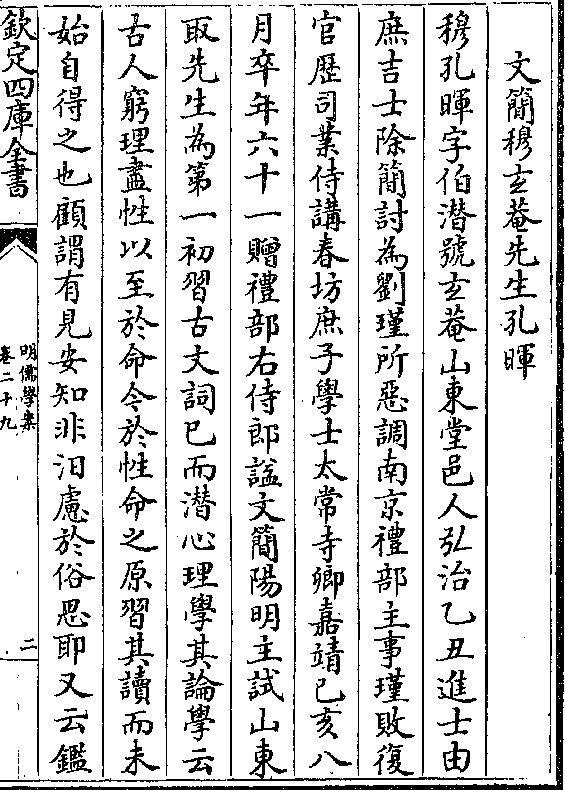 文簡穆玄菴先生孔暉
穆孔暉字伯潛號玄菴山東堂邑人弘治乙丑進士由
庶吉士除簡討為劉瑾所惡調南京禮部主事瑾敗復
官歷司業侍講春坊庶子學士太常寺卿嘉靖已亥八
月卒年六十一贈禮部右侍郎諡文簡陽明主試山東
取先生為第一初習古文詞已而潛心理學其論學云
古人窮理盡性以至於命今於性命之原習其讀而未
始自得之也顧謂有見安知非汨慮於俗思耶又云鑑
欽定四庫全書
明儒學案
卷二十九
二